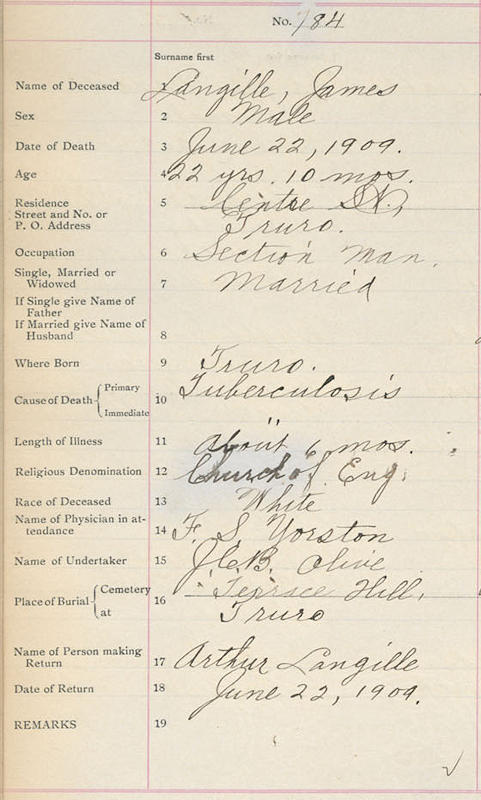 No. 784
Surname first
Name of Deceased 1 Langille, James
Sex 2 Male
Date of Death 3 June 22, 1909.
Age 4 22 yrs. 10 mos.
Residence 5 Centre St,
Street and No. or
P. O. Address Truro.
Occupation 6 Section Man.
Single, Married or
Widowed 7 Married
If Single give Name of
Father
If Married give Name of
Husband 8
Where Born 9 Truro.
Cause of Death { Primary Tuberculosis
Immediate 10
Length of Illness 11 About 6 mos.
Religious Denomination 12 Church of Eng.
Race of Deceased 13 White
Name of Physician in at-
tendance 14 F. S. Yorston
Name of Undertaker 15 J.C.B. Olive
Place of Burial { Cemetery 16 Terrace Hill,
at Truro
Name of Person making
Return 17 Arthur Langille
Date of Return 18 June 22, 1909.
REMARKS 19